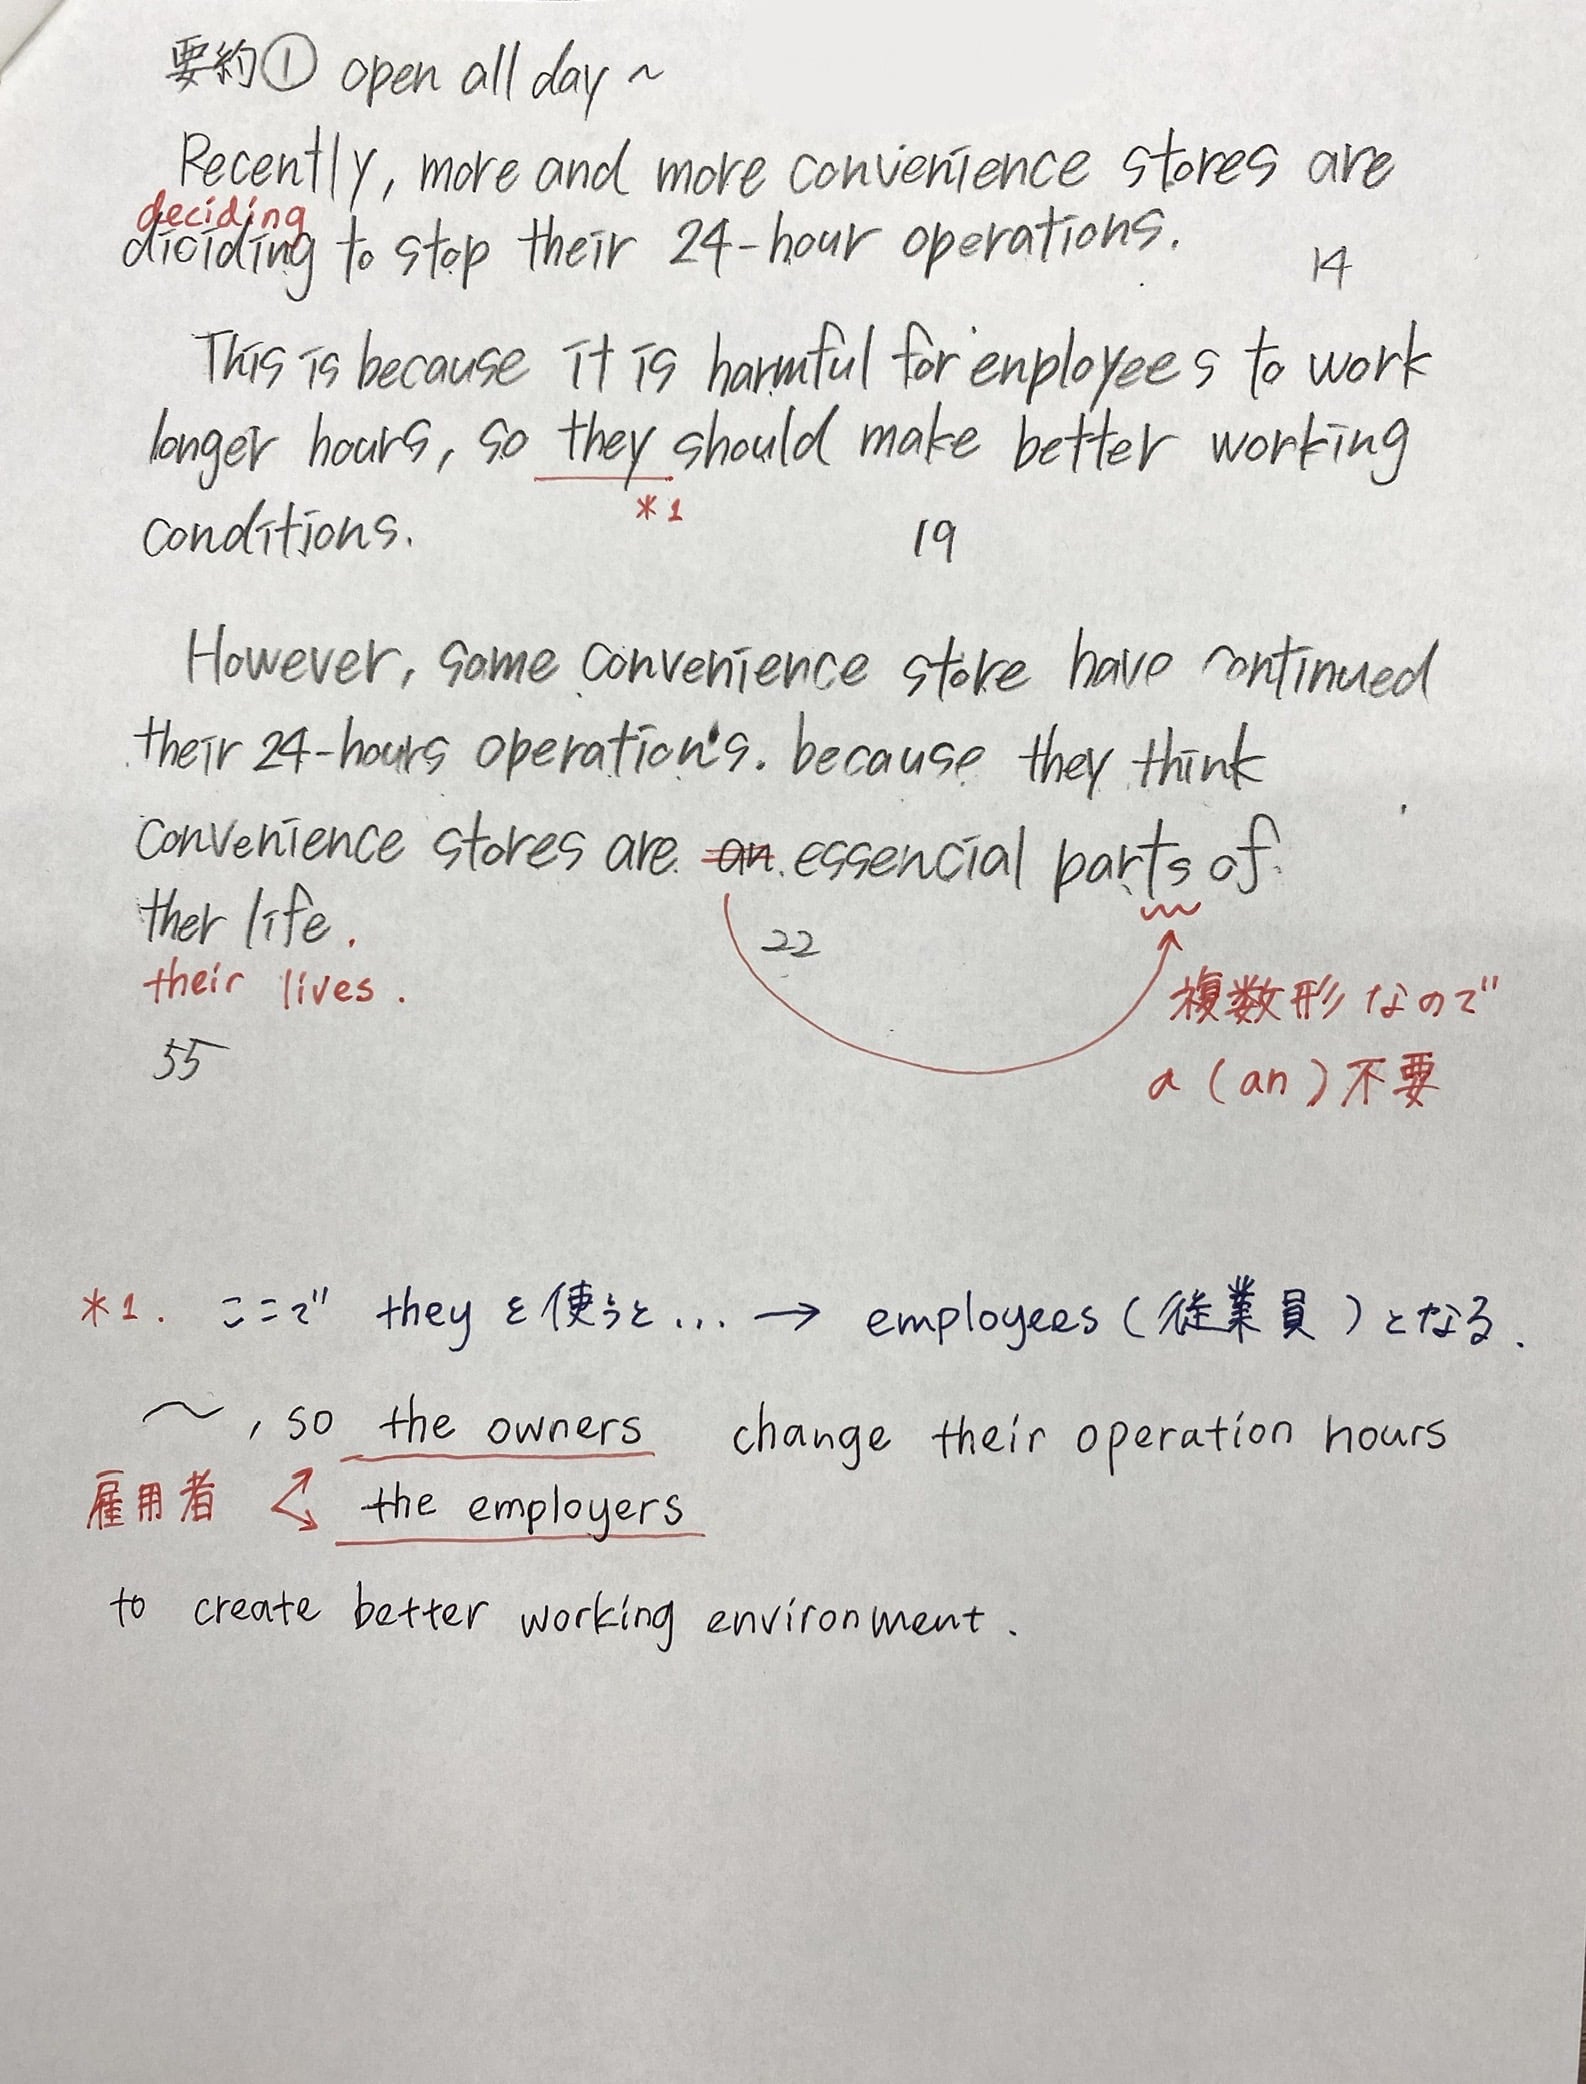 要約① open all day ~
Recently, more and more convenience stores are
deciding
diciding to stop their 24-hour operations.
14
This is because it is harmful for enployees to work
longer hours, so they should make better working
*1
conditions.
19
However, some convenience store have continued
their 24-hours operations. because they think
convenience stores are an essencial parts of
ther life.
22
their lives.
複数形なので
a (an) 不要
55
*1. ここで they を使うと... → employees (従業員) となる.
〜, so the owners change their operation hours
雇用者 the employers
to create better working environment.